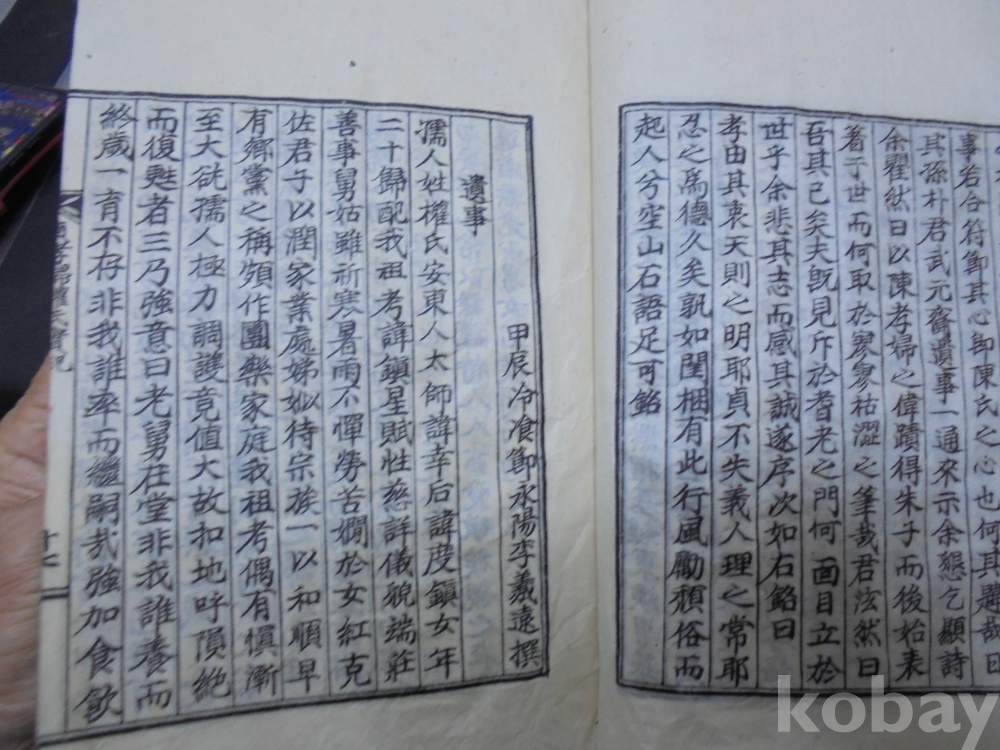 事若合符節其心即陳氏之心也何其
其孫朴君武元齎遺事一通來示余懇乞顯詩
余矍然曰以陳孝婦之偉蹟得朱子而後始表
著于世而何取於寥寥枯澀之筆哉君泫然曰
吾其已矣夫旣見斥於耆老之門何面目立於
世乎余悲其志而感其誠遂序次如右銘曰
孝由其衷天則之明耶貞不失義人理之常耶
忍之爲德久矣孰如閨梱有此行風勵頹俗而
起人兮空山石語足可銘
甲辰冷飡節永陽李義遠撰
遺事
孺人姓權氏安東人太師諱幸后諱度鎭女年
二十歸配我祖考諱鎭星賦性慈詳儀貌端莊
善事舅姑雖祈寒暑雨不憚勞苦嫺於女紅克
佐君子以潤家業處娣姒待宗族一以和順早
有鄕黨之稱頗作團欒家庭我祖考偶有愼漸
至大㱃孺人極力調護竟值大故扣地呼隕絶
而復甦者三乃強意曰老舅在堂非我誰養而
終歲一育不存非我誰率而繼嗣哉強加食飮
十七
kobay